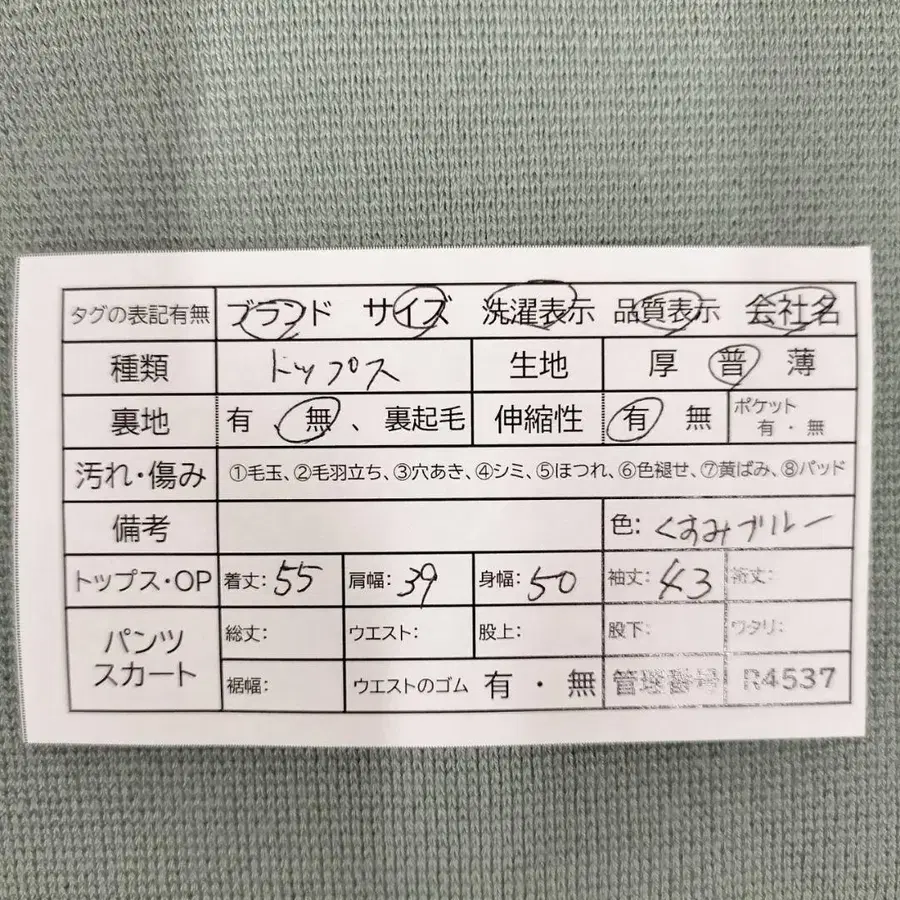 タグの表記有無 ブランド サイズ 洗濯表示 品質表示 会社名
種類 トップス 生地 厚 普 薄
裏地 有 無 、 裏起毛 伸縮性 有 無 ポケット 有・無
汚れ・傷み ①毛玉、②毛羽立ち、③穴あき、④シミ、⑤ほつれ、⑥色褪せ、⑦黄ばみ、⑧パッド
備考 色: くすみブルー
トップス・OP 着丈: 55 肩幅: 39 身幅: 50 袖丈: 43 裄丈:
パンツ スカート 総丈: ウエスト: 股上: 股下: ワタリ:
裾幅: ウエストのゴム 有 ・ 無 管理番号 R4537